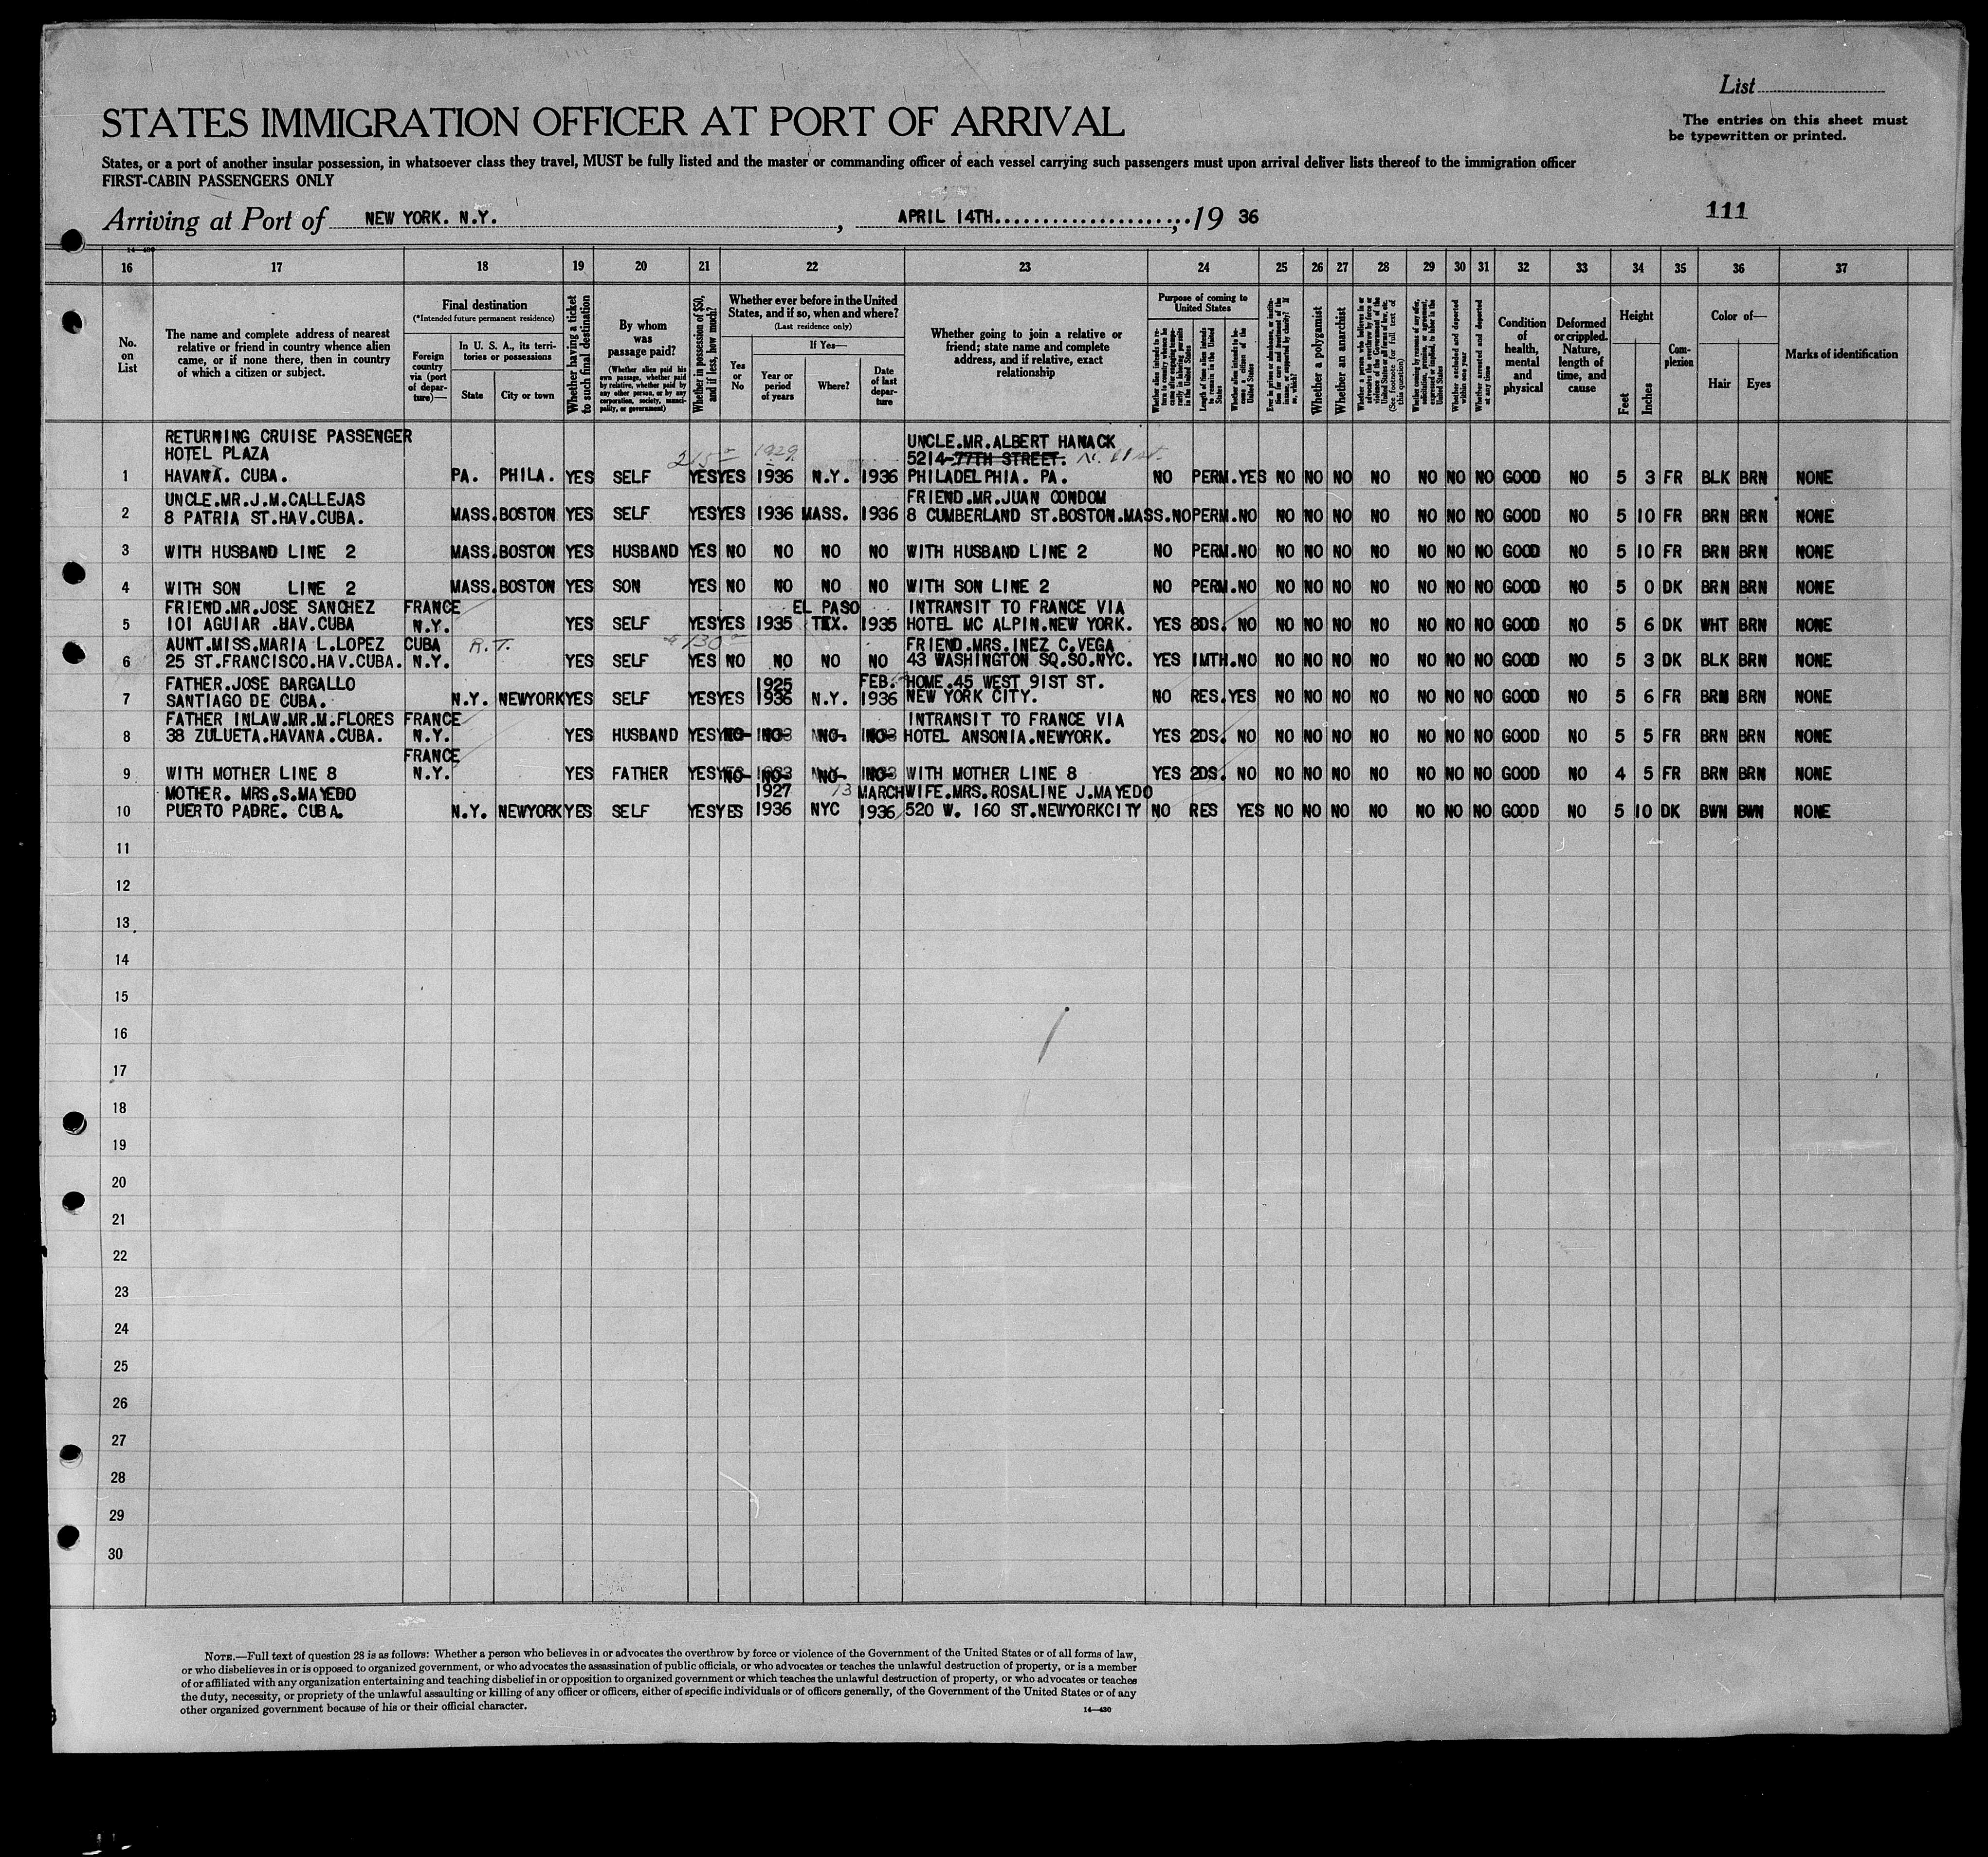 List
STATES IMMIGRATION OFFICER AT PORT OF ARRIVAL
The entries on this sheet must
be typewritten or printed.
States, or a port of another insular possession, in whatsoever class they travel, MUST be fully listed and the master or commanding officer of each vessel carrying such passengers must upon arrival deliver lists thereof to the immigration officer
FIRST-CABIN PASSENGERS ONLY
Arriving at Port of NEW YORK. N.Y. , APRIL 14TH , 19 36
111
14-430
16 17 18 19 20 21 22 23 24 25 26 27 28 29 30 31 32 33 34 35 36 37
No. on List
The name and complete address of nearest relative or friend in country whence alien came, or if none there, then in country of which a citizen or subject.
Final destination
(*Intended future permanent residence)
Foreign country via (port of departure)—
In U. S. A., its territories or possessions
State
City or town
Whether having a ticket to such final destination
By whom was passage paid?
(Whether alien paid his own passage, whether paid by relative, whether paid by any other person, or by any corporation, society, municipality, or government)
Whether in possession of $50, and if less, how much?
Whether ever before in the United States, and if so, when and where?
(Last residence only)
Yes or No
If Yes—
Year or period of years
Where?
Date of last departure
Whether going to join a relative or friend; state name and complete address, and if relative, exact relationship
Purpose of coming to United States
Length of time alien intends to remain in the United States
Whether alien intends to become a citizen of the United States
Whether a polygamist
Whether an anarchist
Whether excluded and deported within one year
Whether arrested and deported at any time
Condition of health, mental and physical
Deformed or crippled. Nature, length of time, and cause
Height
Feet
Inches
Complexion
Color of—
Hair
Eyes
Marks of identification
RETURNING CRUISE PASSENGER UNCLE.MR.ALBERT HANACK
HOTEL PLAZA 1929 5214-77TH STREET.
1 HAVANA. CUBA. PA. PHILA. YES SELF YES YES 1936 N.Y. 1936 PHILADELPHIA. PA. NO PERM. YES NO NO NO NO NO NO NO GOOD NO 5 3 FR BLK BRN NONE
UNCLE.MR.J.M.CALLEJAS FRIEND.MR.JUAN CONDOM
2 8 PATRIA ST.HAV.CUBA. MASS. BOSTON YES SELF YES YES 1936 MASS. 1936 8 CUMBERLAND ST.BOSTON.MASS. NO PERM. NO NO NO NO NO NO NO NO GOOD NO 5 10 FR BRN BRN NONE
3 WITH HUSBAND LINE 2 MASS. BOSTON YES HUSBAND YES NO NO NO NO WITH HUSBAND LINE 2 NO PERM. NO NO NO NO NO NO NO NO GOOD NO 5 10 FR BRN BRN NONE
4 WITH SON LINE 2 MASS. BOSTON YES SON YES NO NO NO NO WITH SON LINE 2 NO PERM. NO NO NO NO NO NO NO NO GOOD NO 5 0 DK BRN BRN NONE
FRIEND.MR.JOSE SANCHEZ FRANCE EL PASO INTRANSIT TO FRANCE VIA
5 101 AGUIAR .HAV.CUBA N.Y. YES SELF YES YES 1935 TEX. 1935 HOTEL MC ALPIN.NEW YORK. YES 8DS. NO NO NO NO NO NO NO NO GOOD NO 5 6 DK WHT BRN NONE
AUNT.MISS.MARIA L.LOPEZ CUBA R.T. 130 FRIEND.MRS.INEZ C.VEGA
6 25 ST.FRANCISCO.HAV.CUBA. N.Y. YES SELF YES NO NO NO NO 43 WASHINGTON SQ.SO.NYC. YES 1MTH. NO NO NO NO NO NO NO NO GOOD NO 5 3 DK BLK BRN NONE
FATHER.JOSE BARGALLO 1925 FEB. HOME.45 WEST 91ST ST.
7 SANTIAGO DE CUBA. N.Y. NEWYORK YES SELF YES YES 1936 N.Y. 1936 NEW YORK CITY. NO RES. YES NO NO NO NO NO NO NO GOOD NO 5 6 FR BRN BRN NONE
FATHER INLAW.MR.M.FLORES FRANCE INTRANSIT TO FRANCE VIA
8 38 ZULUETA.HAVANA.CUBA. N.Y. YES HUSBAND YES NO NO NO NO HOTEL ANSONIA.NEWYORK. YES 2DS. NO NO NO NO NO NO NO NO GOOD NO 5 5 FR BRN BRN NONE
FRANCE
9 WITH MOTHER LINE 8 N.Y. YES FATHER YES NO NO NO NO WITH MOTHER LINE 8 YES 2DS. NO NO NO NO NO NO NO NO GOOD NO 4 5 FR BRN BRN NONE
MOTHER. MRS.S.MAYEDO 1927 13 MARCH WIFE.MRS.ROSALINE J.MAYEDO
10 PUERTO PADRE. CUBA. N.Y. NEWYORK YES SELF YES YES 1936 NYC 1936 520 W. 160 ST.NEWYORKCITY NO RES YES NO NO NO NO NO NO NO GOOD NO 5 10 DK BWN BWN NONE
11
12
13
14
15
16
17
18
19
20
21
22
23
24
25
26
27
28
29
30
NOTE.—Full text of question 28 is as follows: Whether a person who believes in or advocates the overthrow by force or violence of the Government of the United States or of all forms of law,
or who disbelieves in or is opposed to organized government, or who advocates the assassination of public officials, or who advocates or teaches the unlawful destruction of property, or is a member
of or affiliated with any organization entertaining and teaching disbelief in or opposition to organized government or which teaches the unlawful destruction of property, or who advocates or teaches
the duty, necessity, or propriety of the unlawful assaulting or killing of any officer or officers, either of specific individuals or of officers generally, of the Government of the United States or of any
other organized government because of his or their official character.
14—430